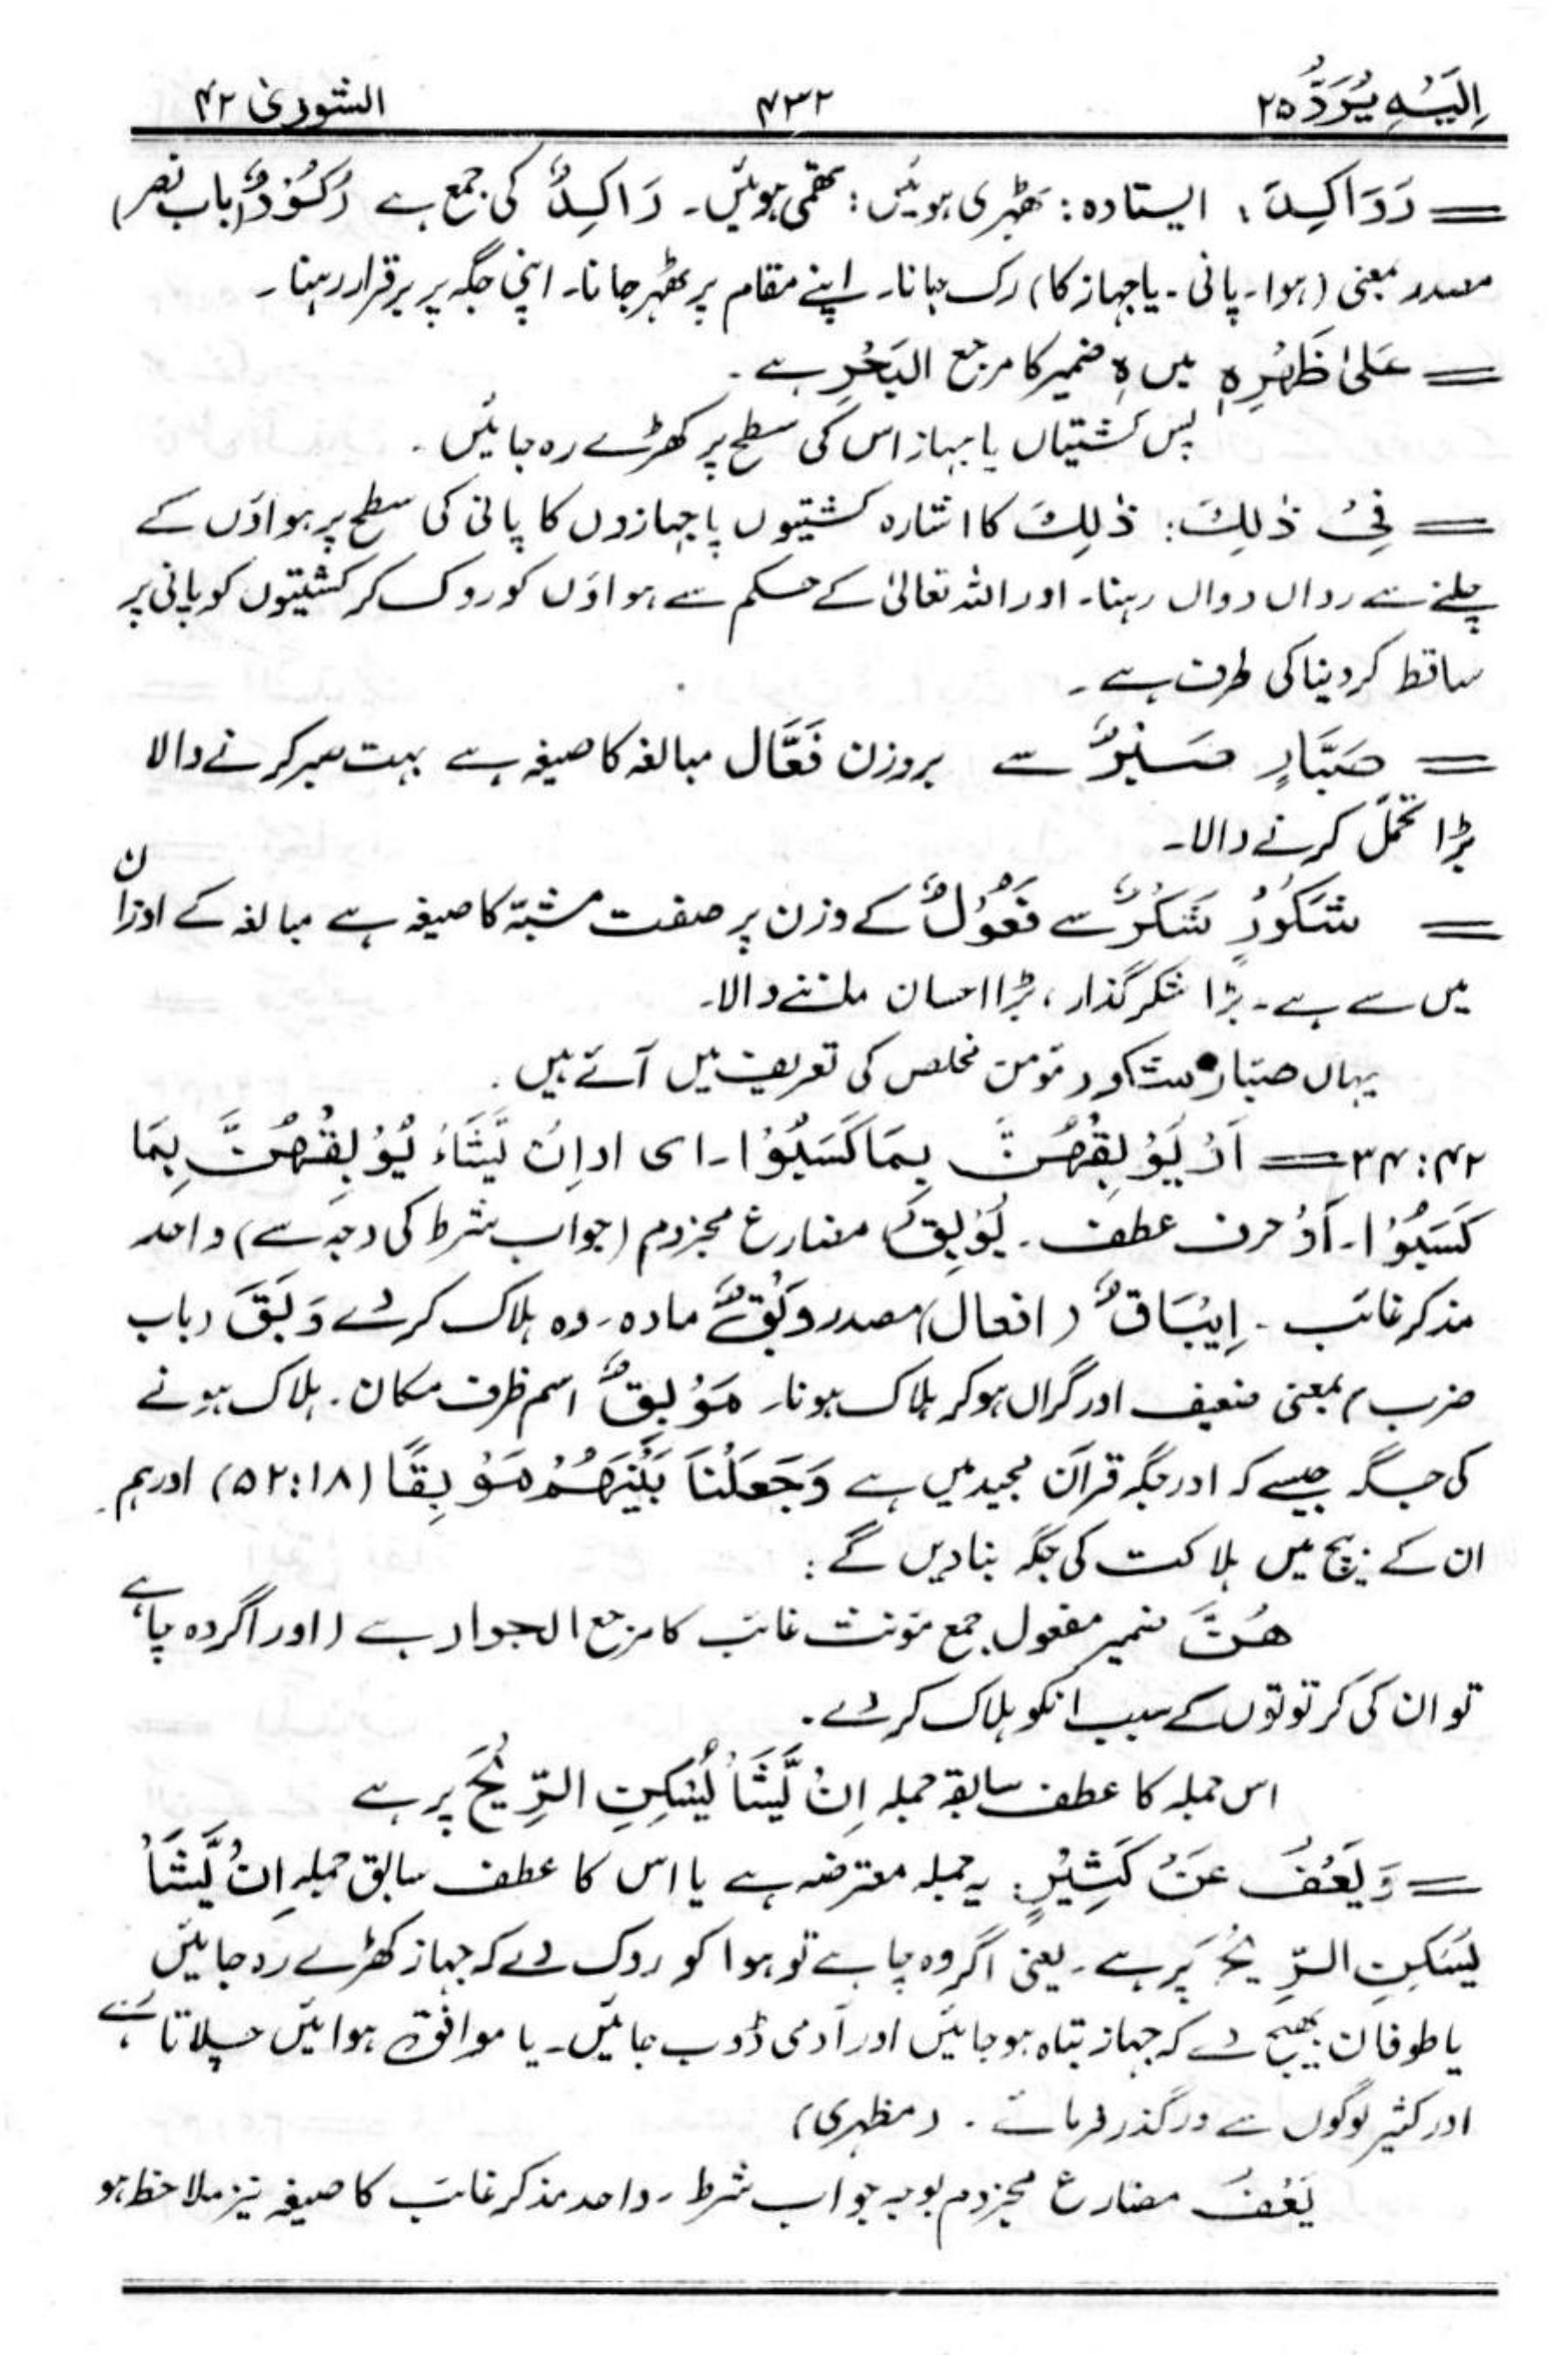 اِلَیْہِ یُرَدُّ ۲۵ ۴۳۲ الشوریٰ ۴۲
= رَوَاکِدَ: ایستادہ: ٹھہری ہوئیں: تھمی ہوئیں۔ رَاکِدٌ کی جمع ہے رُکُوْدٌ (باب نصر)
مصدر بمعنی (ہوا۔ پانی۔ یا جہاز کا) رک جانا۔ اپنے مقام پر ٹھہر جانا۔ اپنی جگہ پر برقرار رہنا۔
= عَلیٰ ظَہْرِہٖ میں ہٖ ضمیر کا مرجع البَحْرِ ہے۔
پس کشتیاں یا جہاز اس کی سطح پر کھڑے رہ جائیں۔
= فِیْ ذٰلِکَ: ذٰلِکَ کا اشارہ کشتیوں یا جہازوں کا پانی کی سطح پر ہواؤں کے
چلنے سے رواں دواں رہنا۔ اور اللہ تعالیٰ کے حکم سے ہواؤں کو روک کر کشتیوں کو پانی پر
ساقط کر دینا کی طرف ہے۔
= صَبَّارٍ صَبْرٌ سے بروزن فَعَّال مبالغہ کا صیغہ ہے بہت صبر کرنے والا
بڑا تحمّل کرنے والا۔
= شَکُوْرٍ شُکْرٌ سے فَعُوْلٌ کے وزن پر صفت مشبّہ کا صیغہ ہے مبالغہ کے اوزان
میں سے ہے۔ بڑا شکر گذار، بڑا احسان ماننے والا۔
یہاں صبّار و شکور مؤمن مخلص کی تعریف میں آئے ہیں۔
۴۲:۳۴ = اَوْ یُوْبِقْھُنَّ بِمَا کَسَبُوْا۔ ای او اِنْ یَّشَاْءُ یُوْبِقْھُنَّ بِمَا
کَسَبُوْا۔ اَوْ حرف عطف۔ یُوْبِقْ مضارع مجزوم (جواب شرط کی وجہ سے) واحد
مذکر غائب۔ اِیْبَاقٌ (افعال) مصدر وَبْقٌ مادہ۔ وہ ہلاک کر دے وَبَقَ (باب
ضرب) بمعنی ضعیف اور گراں ہو کر ہلاک ہونا۔ مَوْبِقٌ اسم ظرف مکان۔ ہلاک ہونے
کی جگہ جیسے کہ اور جگہ قرآن مجید میں ہے وَجَعَلْنَا بَیْنَھُمْ مَوْبِقًا (۵۲:۱۸) اور ہم
ان کے بیچ میں ہلاکت کی جگہ بنا دیں گے:
ھُنَّ ضمیر مفعول جمع مؤنث غائب کا مرجع الجوار ہے (اور اگر وہ چاہے
تو ان کی کرتوتوں کے سبب انکو ہلاک کر دے۔
اس جملہ کا عطف سابقہ جملہ اِنْ یَّشَأْ یُسْکِنِ الرِّیْحَ پر ہے
= وَیَعْفُ عَنْ کَثِیْرٍ: یہ جملہ معترضہ ہے یا اس کا عطف سابق جملہ اِنْ یَّشَأْ
یُسْکِنِ الرِّیْحَ پر ہے۔ یعنی اگر وہ چاہے تو ہوا کو روک دے کہ جہاز کھڑے رہ جائیں
یا طوفان بھیج دے کہ جہاز تباہ ہو جائیں اور آدمی ڈوب جائیں۔ یا موافق ہوائیں چلاتا ہے
اور کثیر لوگوں سے درگذر فرمائے۔ (مظہری)
یَعْفُ مضارع مجزوم بوجہ جواب شرط۔ واحد مذکر غائب کا صیغہ نیز ملاحظہ ہو